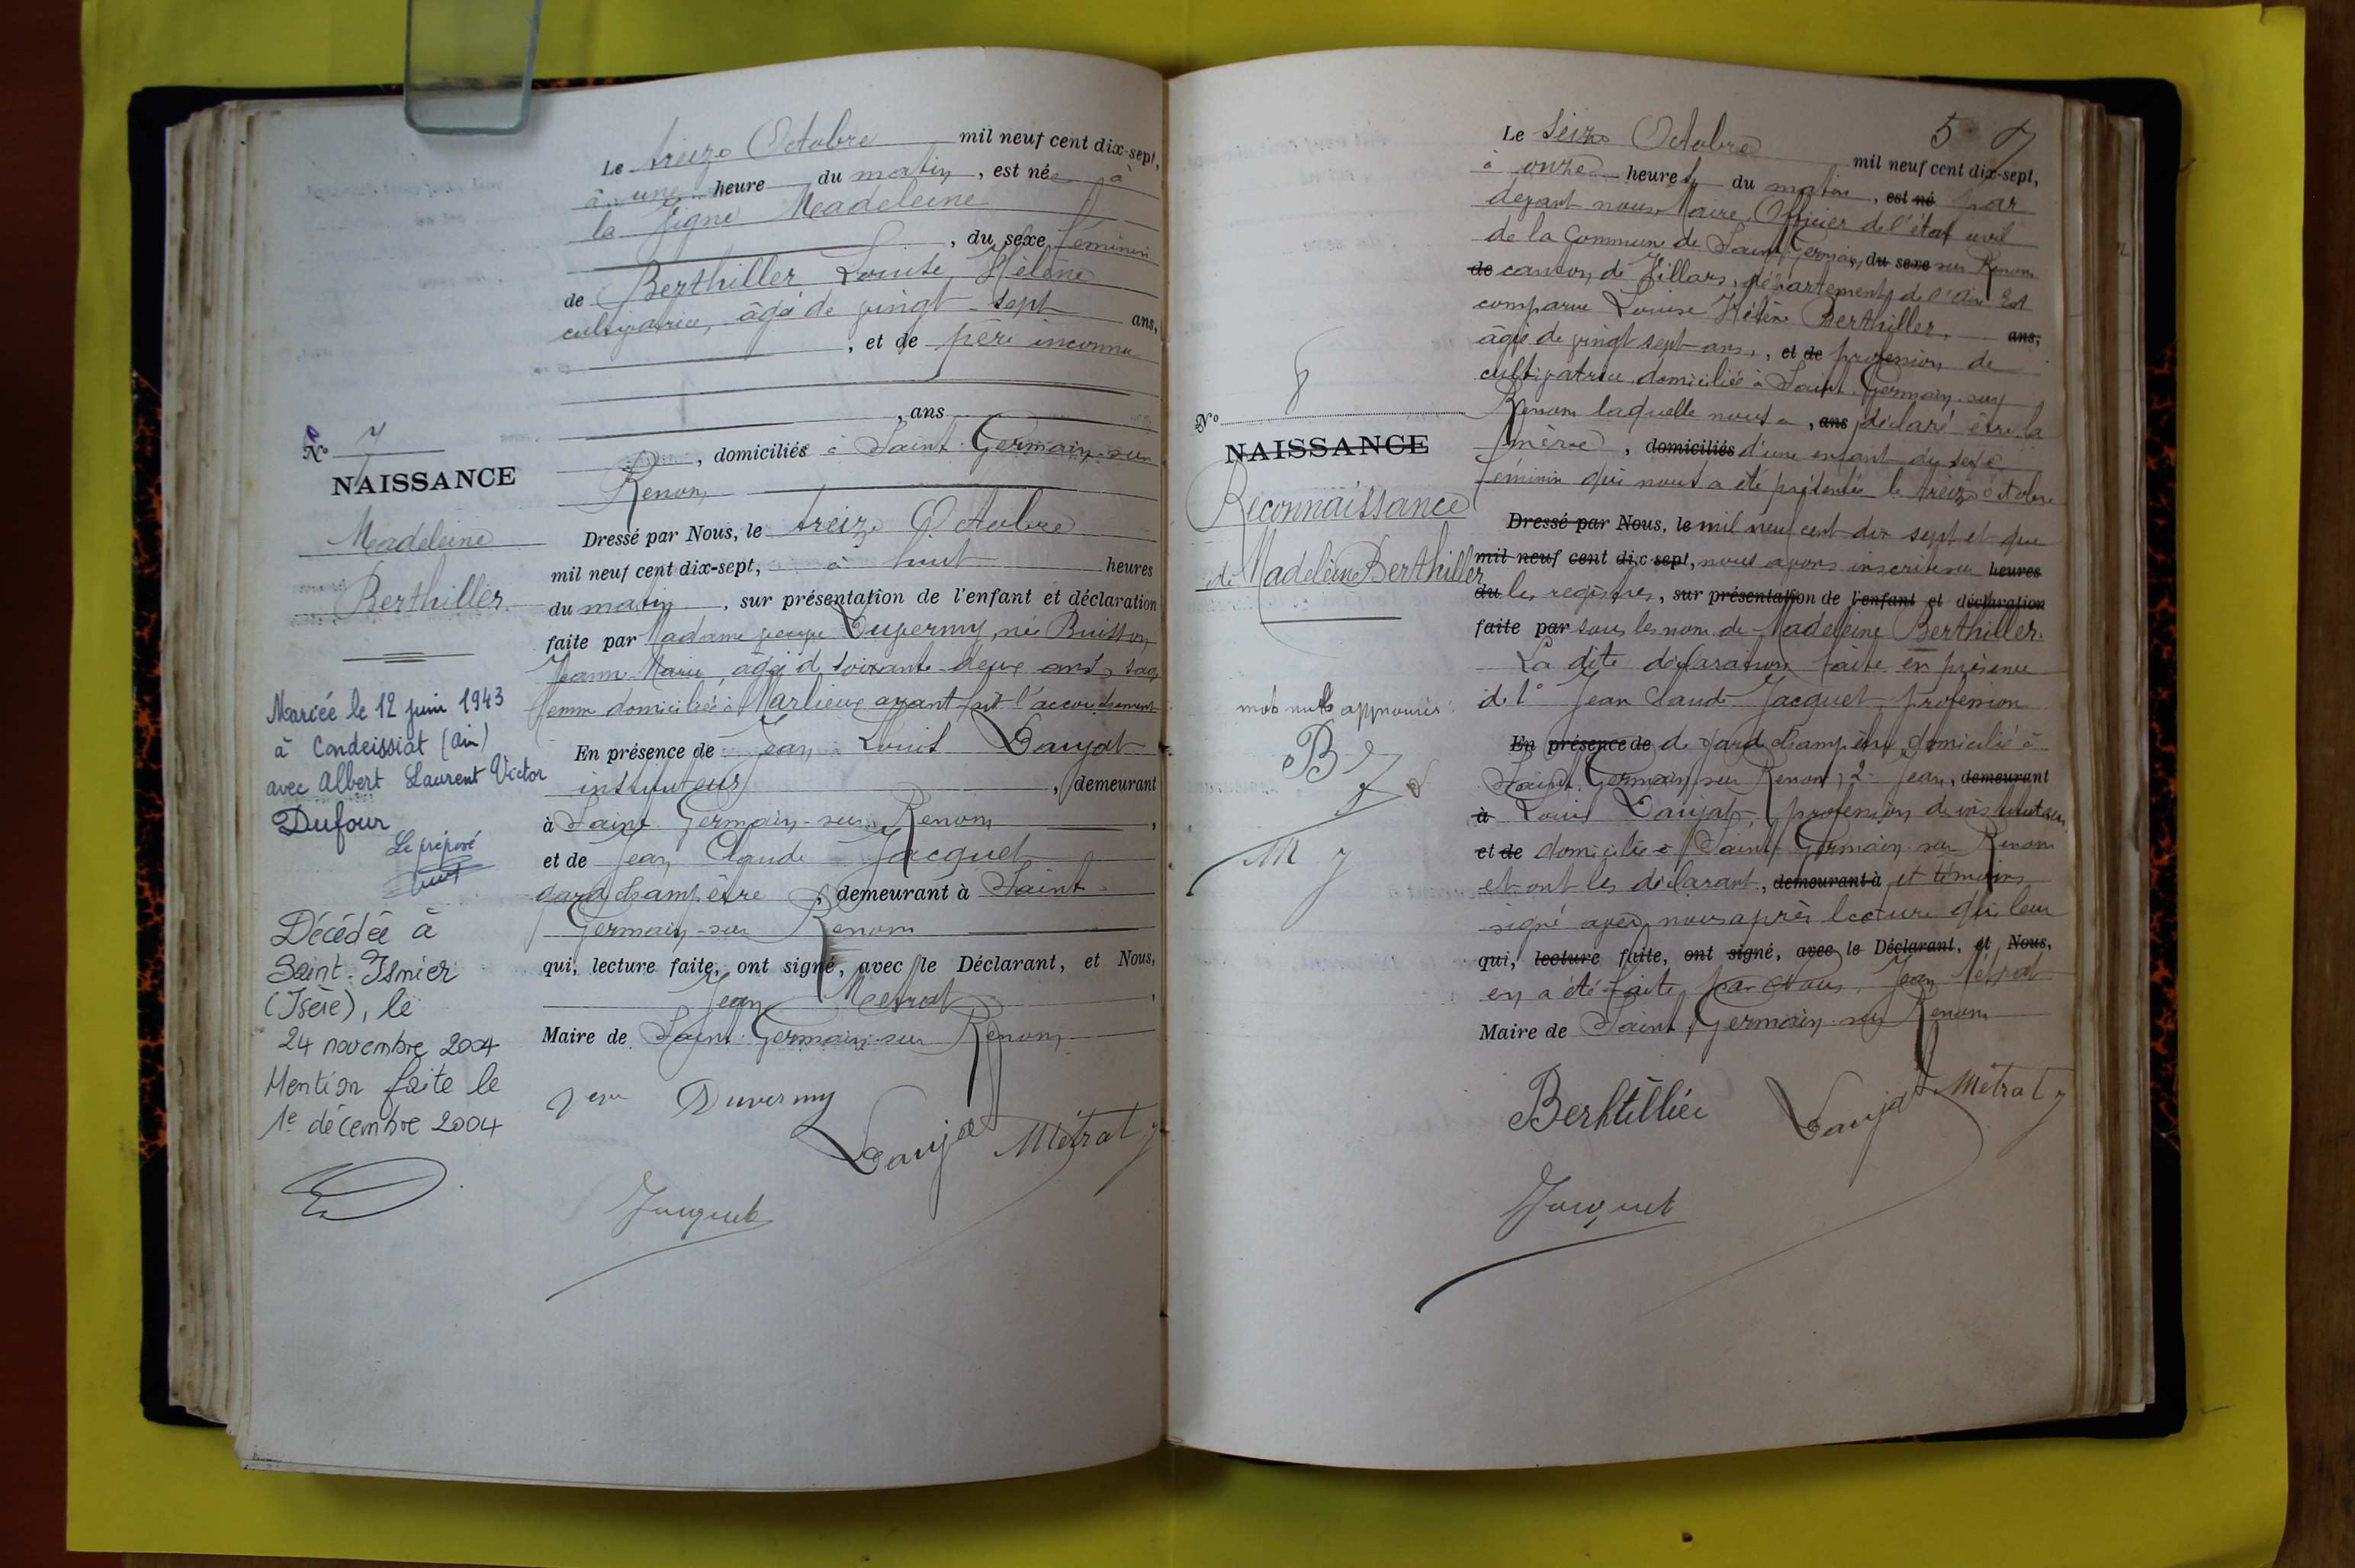 Le treize Octobre mil neuf cent dix-sept,
à une heure du matin, est née à
la Vigne Madeleine
, du sexe féminin
de Berthiller Louise Hélène
cultivatrice, âgée de vingt-sept ans,
, et de père inconnu
, ans
, domiciliés à Saint-Germain-sur
Renon
Dressé par Nous, le treize Octobre
mil neuf cent dix-sept, à huit heures
du matin, sur présentation de l'enfant et déclaration
faite par Madame veuve Duvermy, née Buisson,
Jeanne Marie, âgée de soixante-deux ans, sage
femme domiciliée à Marlieux ayant fait l'accouchement
En présence de Jean Louis Daujat
instituteur, demeurant
à Saint Germain-sur-Renon,
et de Jean Claude Jacquet
garde champêtre, demeurant à Saint-
Germain-sur Renon
qui, lecture faite, ont signé, avec le Déclarant, et Nous,
Jean Métrat,
Maire de Saint-Germain-sur Renon
Duvermy
Daujat Métrat
Jacquet
N° 7
NAISSANCE
Madeleine
Berthiller
Mariée le 12 juin 1943
à Condeissiat (Ain)
avec Albert Laurent Victor
Dufour
Le préposé
Décédée à
Saint-Ismier
(Isère), le
24 novembre 2004
Mention faite le
1e décembre 2004
5
Le seize Octobre mil neuf cent dix-sept,
à onze heures du matin, est né par
devant nous, Maire, Officier de l'état civil
de la Commune de Saint Germain, du sexe sur Renon
de canton de Villars, département de l'Ain Est
comparue Louise Hélène Berthiller, ans,
âgée de vingt sept ans, et de profession de
cultivatrice domiciliée à Saint-Germain-sur
Renon laquelle nous a, ans déclaré être la
mère, domiciliés d'une enfant du sexe
féminin qui nous a été présentée le treize octobre
Dressé par Nous, le mil neuf cent dix sept et que
mil neuf cent dix sept, nous avons inscrite sur heures
du les registres, sur présentation de l'enfant et déclaration
faite par sous les nom de Madeleine Berthiller.
La dite déclaration faite en présence
de 1° Jean Claude Jacquet, profession
En présence de de garde champêtre, domicilié à
Saint-Germain-sur Renon, 2° Jean, demeurant
à Louis Daujat, profession d'instituteur
et de domicilié à Saint Germain sur Renon
et ont les déclarant, demeurant à et témoins
signé avec nous après lecture qui leur
qui, lecture faite, ont signé, avec le Déclarant, et Nous,
en a été faite, par Nous, Jean Métrat
Maire de Saint-Germain-sur Renon
Berhtillier Daujat Métrat
Jacquet
N° 8
NAISSANCE
Reconnaissance
de Madeleine Berthiller
mots nuls approuvés.